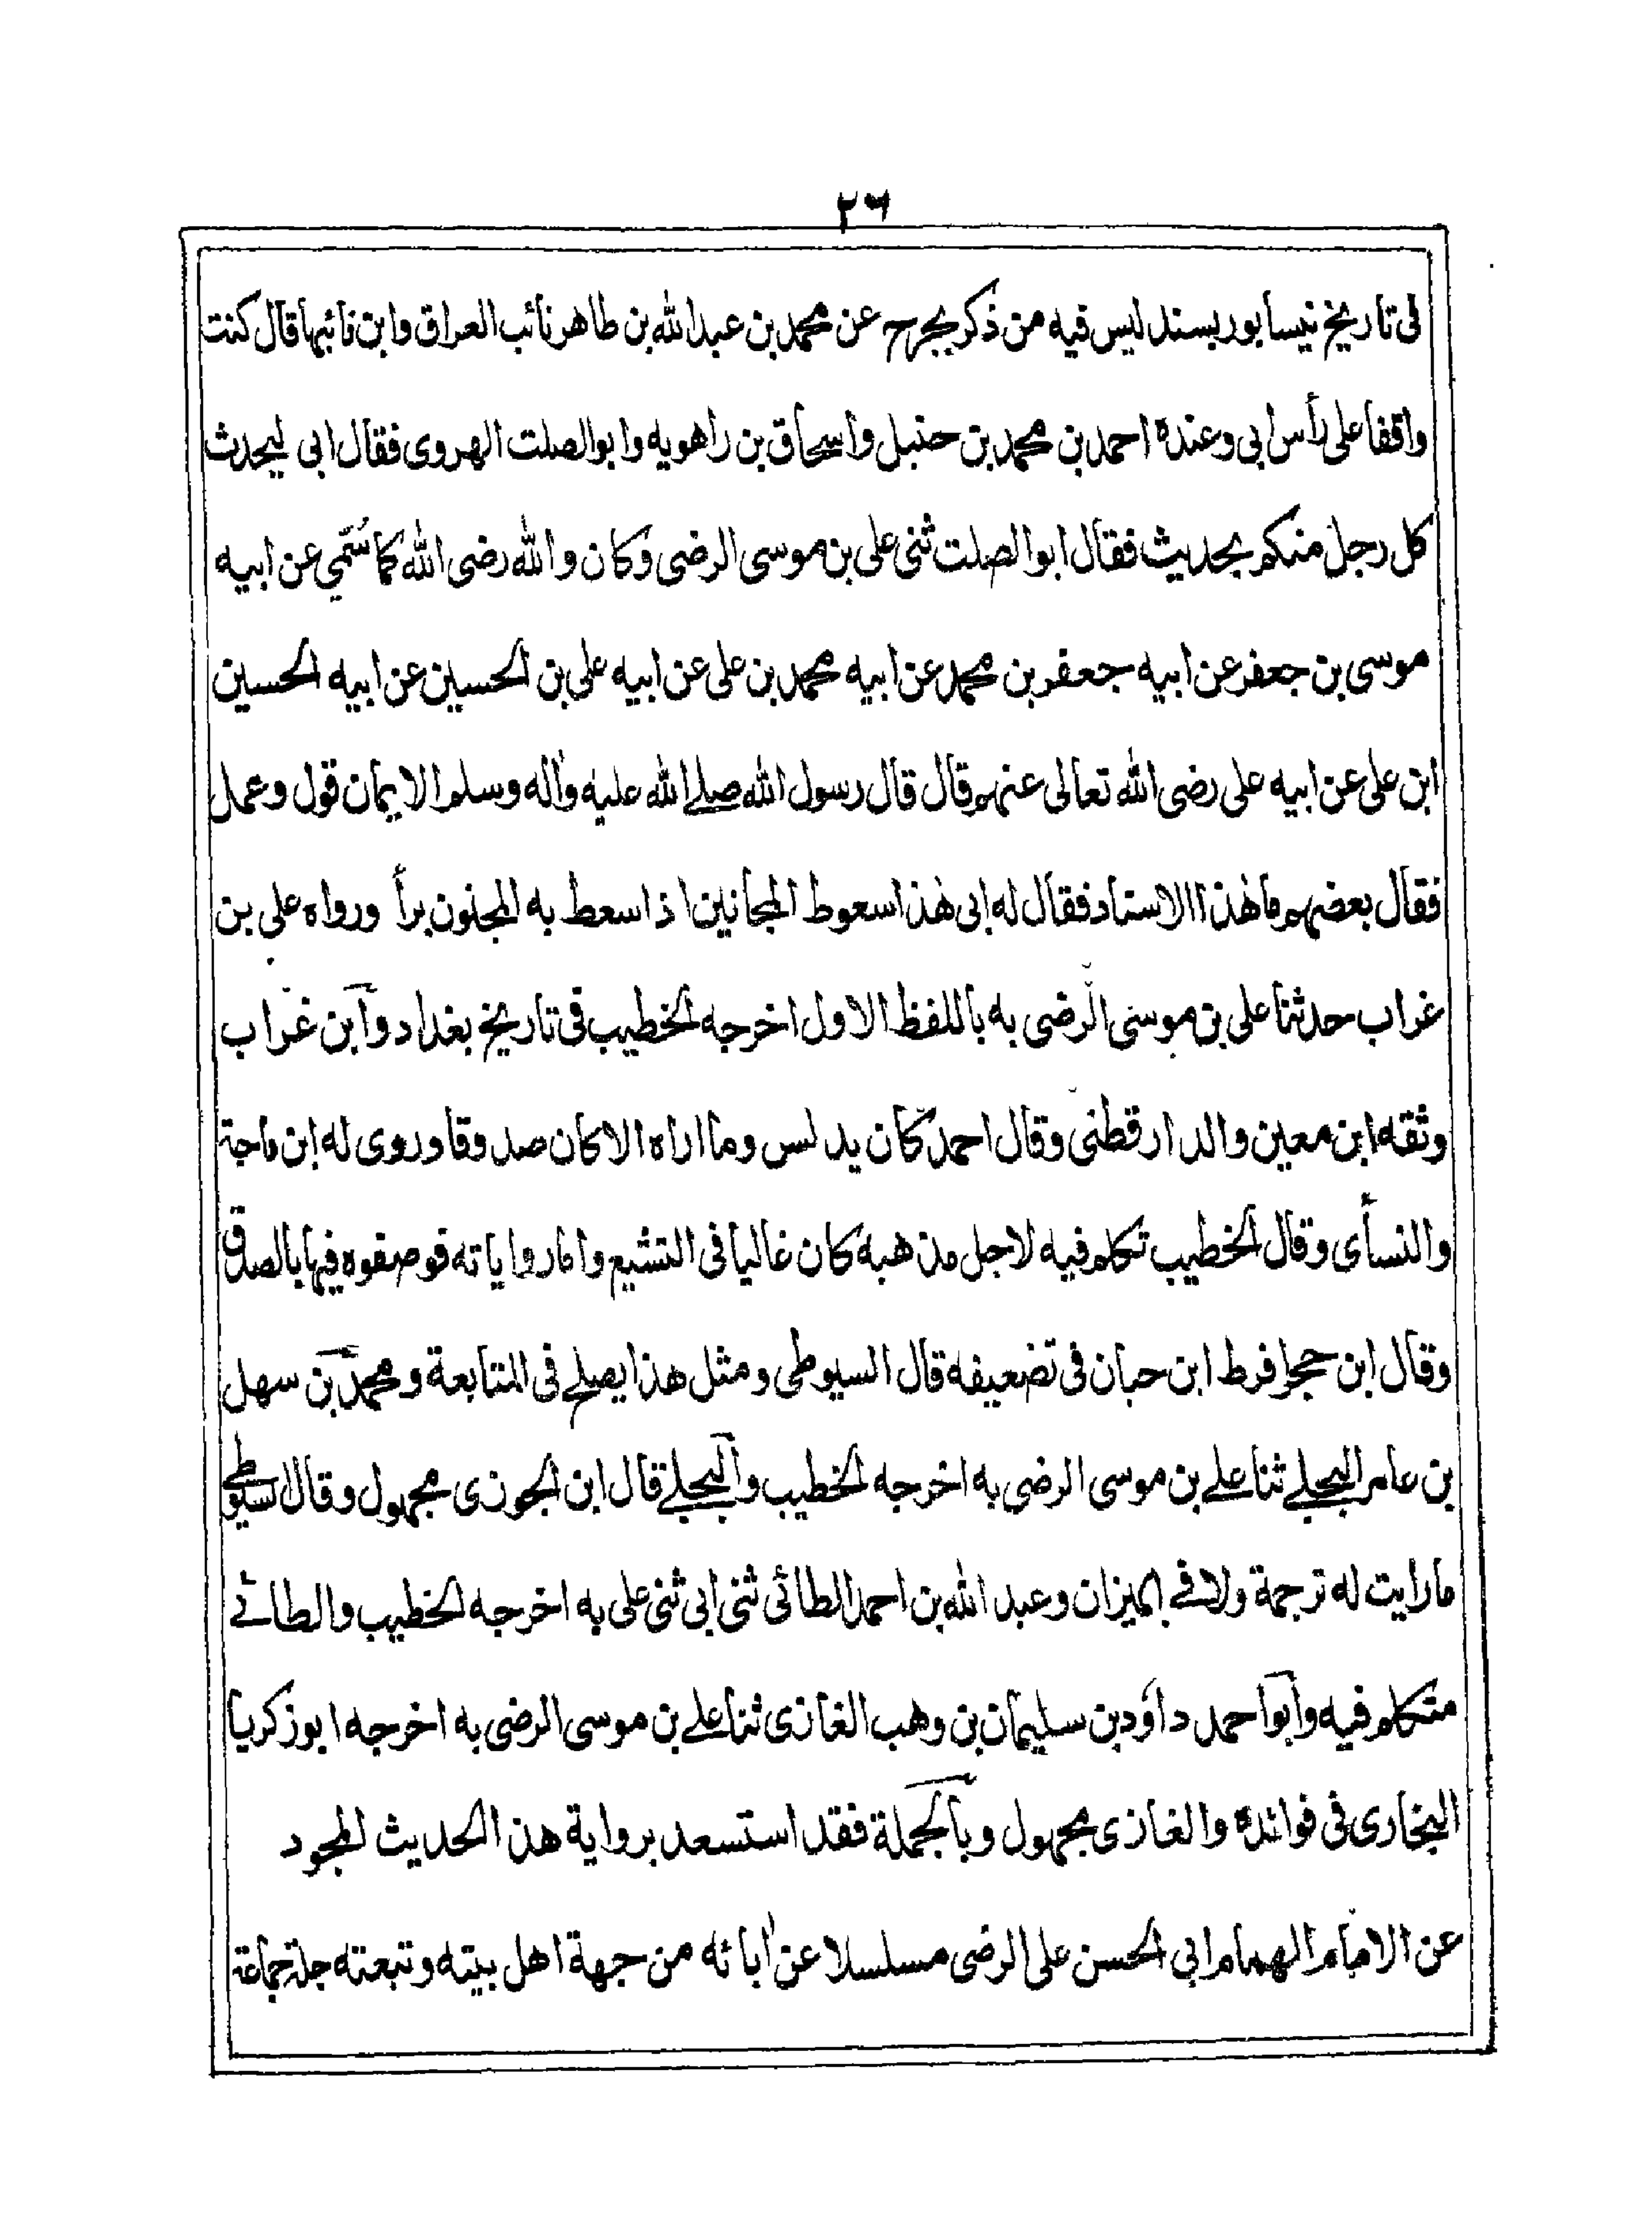 ٢٦
فى تاريخ نيسابور بسند ليس فيه من ذكر بجرح عن محمد بن عبد الله بن طاهر نائب العراق وابن نائبها قال كنت
واقفا على رأس ابى وعنده احمد بن محمد بن حنبل واسحاق بن راهويه وابو الصلت الهروى فقال ابى ليحدث
كل رجل منكم بحديث فقال ابو الصلت ثنى على بن موسى الرضى وكان والله رضى الله كما سُمّي عن ابيه
موسى بن جعفر عن ابيه جعفر بن محمد عن ابيه محمد بن على عن ابيه على بن الحسين عن ابيه الحسين
ابن على عن ابيه على رضى الله تعالى عنهم قال قال رسول الله صلے الله عليه واٰله وسلم الايمان قول وعمل
فقال بعضهم ما هٰذا الاسناد فقال له ابى هٰذا سعوط المجانين اذا سعط به المجنون برأ ورواه على بن
غراب حدثنا على بن موسى الرضى به باللفظ الاول اخرجه الخطيب فى تاريخ بغداد وابن غراب
وثقه ابن معين والدارقطنى وقال احمد كان يدلس وما اراه الا كان صدوقا وروى له ابن ماجة
والنسأى وقال الخطيب تكلم فيه لاجل مذهبه كان غاليا فى التشيع واما رواياته فوصفوه فيها بالصدق
وقال ابن حجر افرط ابن حبان فى تضعيفه قال السيوطى ومثل هذا يصلح فى المتابعة ومحمد بن سهل
بن عامر البجلے ثنا علے بن موسى الرضى به اخرجه الخطيب والبجلے قال ابن الجوزى مجهول وقال السيوطے
ما رايت له ترجمة ولا فے الميزان وعبد الله بن احمد الطائى ثنى ابى ثنى على به اخرجه الخطيب والطائے
متكلم فيه وابو احمد داؤد بن سليمان بن وهب الغازى ثنا علے بن موسى الرضى به اخرجه ابو زكريا
البخارى فى فوائده والغازى مجهول وبالجملة فقد استسعد برواية هذا الحديث المجود
عن الامام الهمام ابى الحسن على الرضى مسلسلا عن اٰبائه من جهة اهل بيته وتبعته جلة جماعة